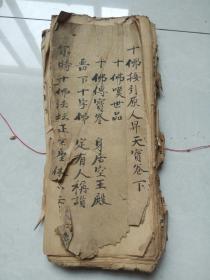 十佛接引原人昇天寳卷下
十佛嘆世品
十佛傳寳卷　身居空王殿
畱下十字佛　定有人稱讃
尒時十佛法坛正